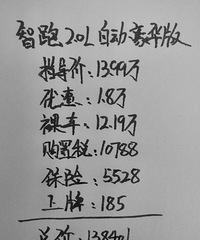 智跑2.0L自动豪华版
指导价:13.99万
优惠:1.8万
裸车:12.19万
购置税:10788
保险:5528
上牌:185
总价:138401